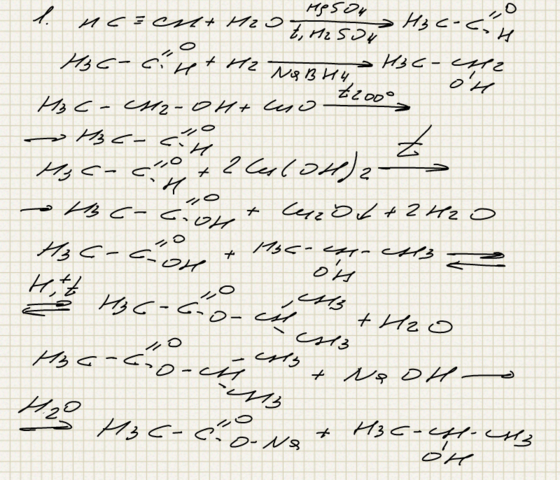 1. HC≡CH + H2O —HgSO4 / t, H2SO4→ H3C-C(=O)-H
H3C-C(=O)-H + H2 —NaBH4→ H3C-CH2-OH
H3C-CH2-OH + CuO —t 200°→
→ H3C-C(=O)-H
H3C-C(=O)-H + 2Cu(OH)2 —t→
→ H3C-C(=O)-OH + Cu2O↓ + 2H2O
H3C-C(=O)-OH + H3C-CH(OH)-CH3 ⇌
⇌ H+, t H3C-C(=O)-O-CH(-CH3)-CH3 + H2O
H3C-C(=O)-O-CH(-CH3)-CH3 + NaOH →
H2O → H3C-C(=O)-O-Na + H3C-CH(OH)-CH3